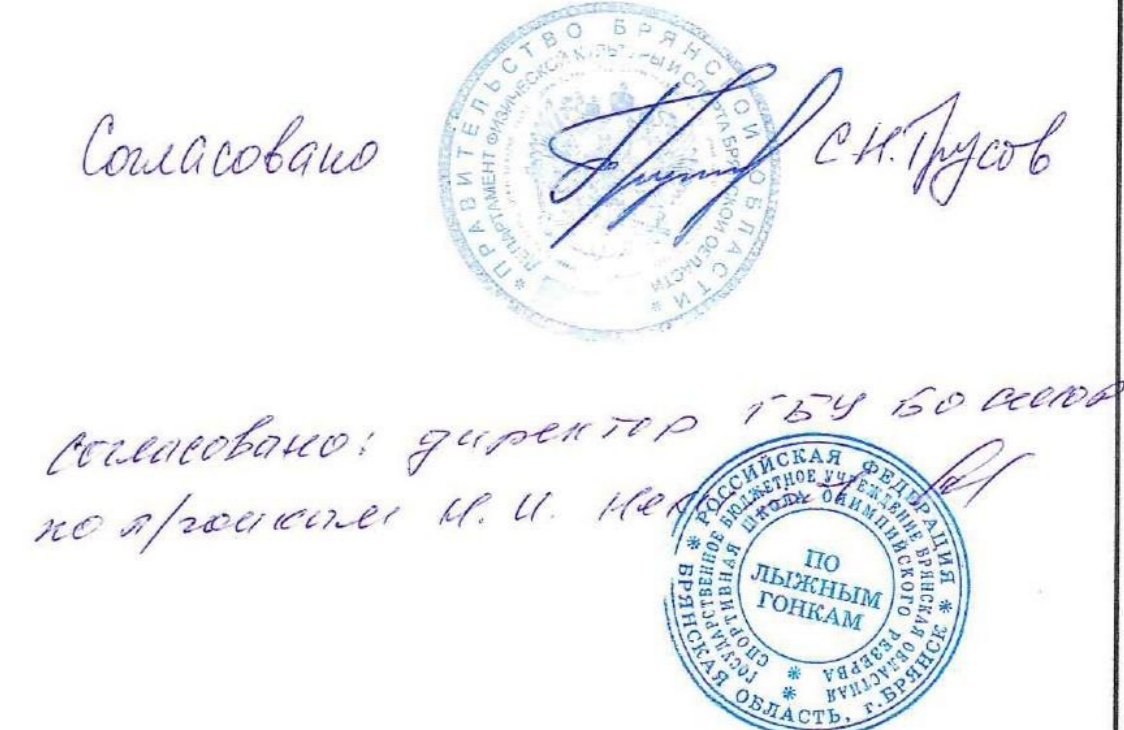 Согласовано
С.Н. Трусов
ПРАВИТЕЛЬСТВО БРЯНСКОЙ ОБЛАСТИ
ДЕПАРТАМЕНТ ФИЗИЧЕСКОЙ КУЛЬТУРЫ И СПОРТА БРЯНСКОЙ ОБЛАСТИ
согласовано: директор ГБУ БО СШОР
по л/гонкам Н. И.
РОССИЙСКАЯ ФЕДЕРАЦИЯ * БРЯНСКАЯ ОБЛАСТЬ, г. БРЯНСК *
ГОСУДАРСТВЕННОЕ БЮДЖЕТНОЕ УЧРЕЖДЕНИЕ БРЯНСКАЯ ОБЛАСТНАЯ
СПОРТИВНАЯ ШКОЛА ОЛИМПИЙСКОГО РЕЗЕРВА
ПО
ЛЫЖНЫМ
ГОНКАМ